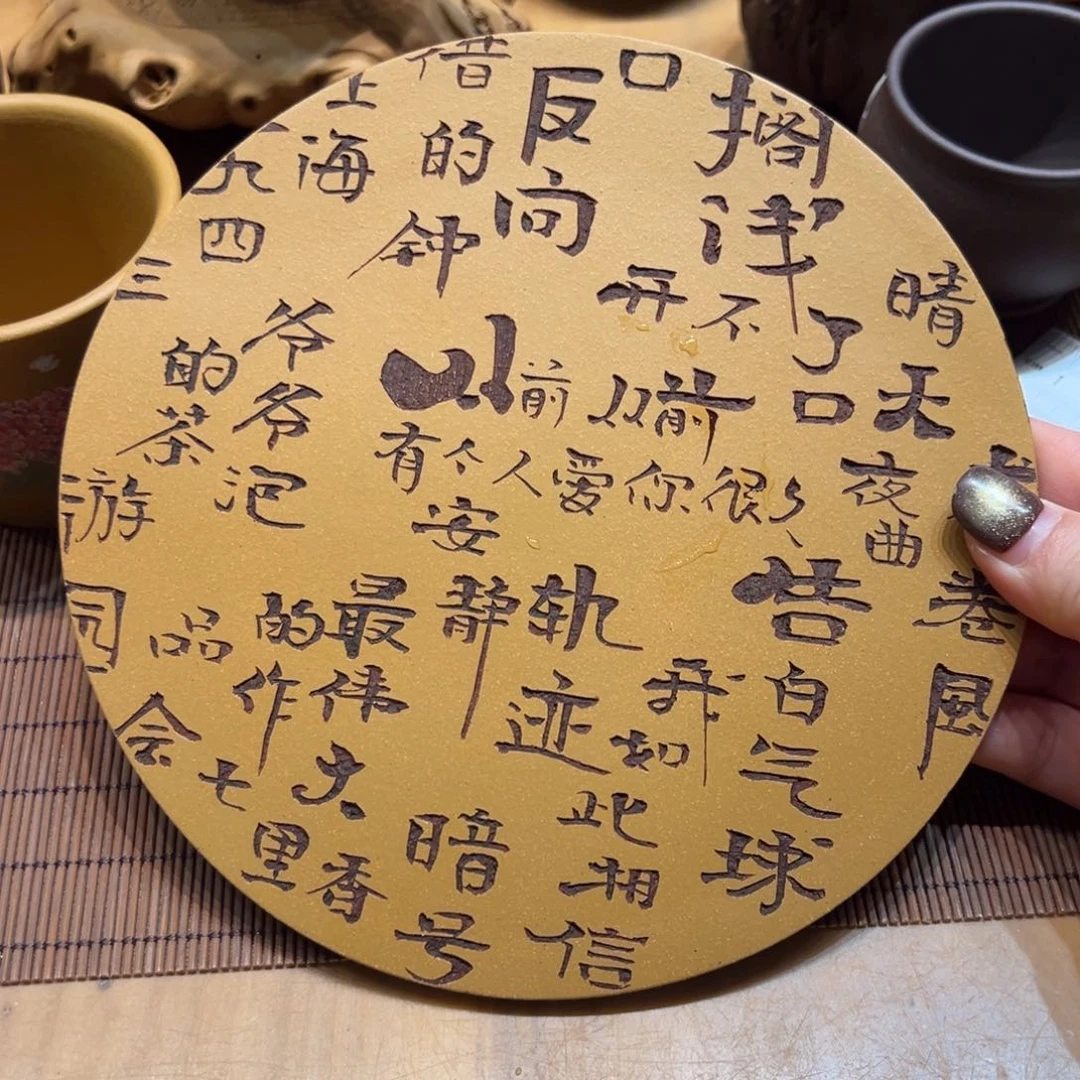 晴天
搁浅
借口
反向的钟
上海一九四三
开不了口
从前从前
有个人爱你很久
夜曲
爷爷泡的茶
安静
轨迹
告白气球
卷风
园游会
最伟大的作品
我如此相信
七里香
暗号